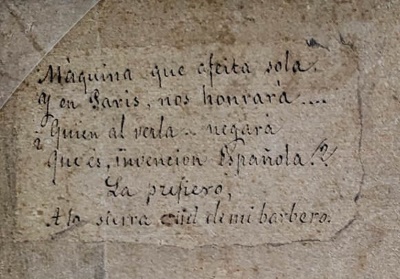 Máquina que afeita sola
Y en Paris, nos honrará....
¿Quien al verla.. negará
Que es, invencion Española!?
La prefiero,
A la sierra cruel de mi barbero.